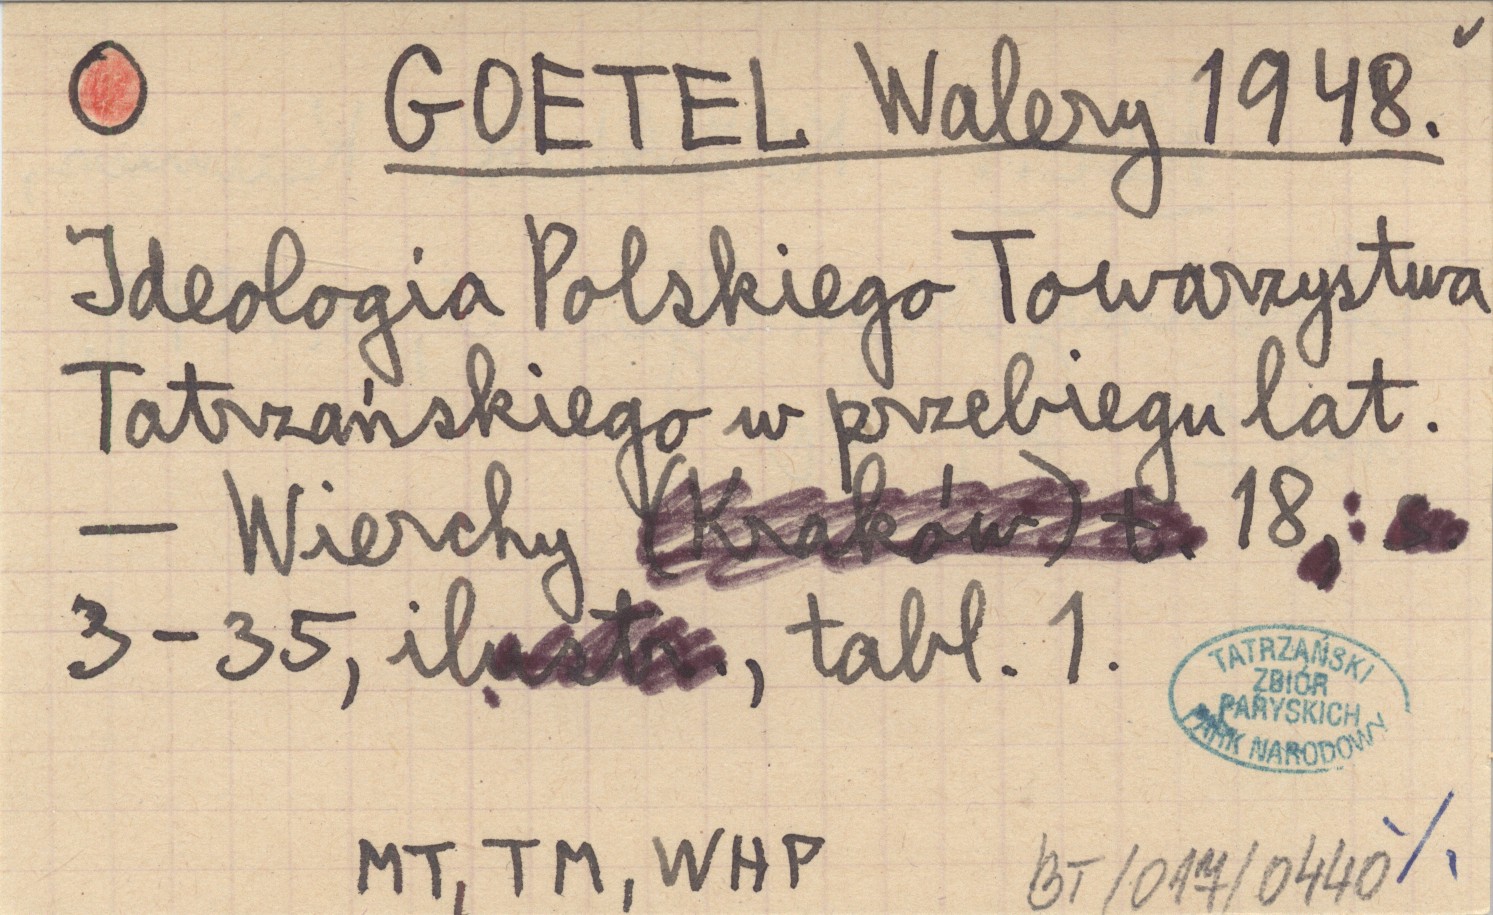 GOETEL Walery 1948.
Ideologia Polskiego Towarzystwa
Tatrzańskiego w przebiegu lat.
— Wierchy (Kraków) t. 18, : s.
3-35, ilustr., tabl. 1.
TATRZAŃSKI
ZBIÓR
PARYSKICH
PARK NARODOWY
MT, TM, WHP
BT/017/0440